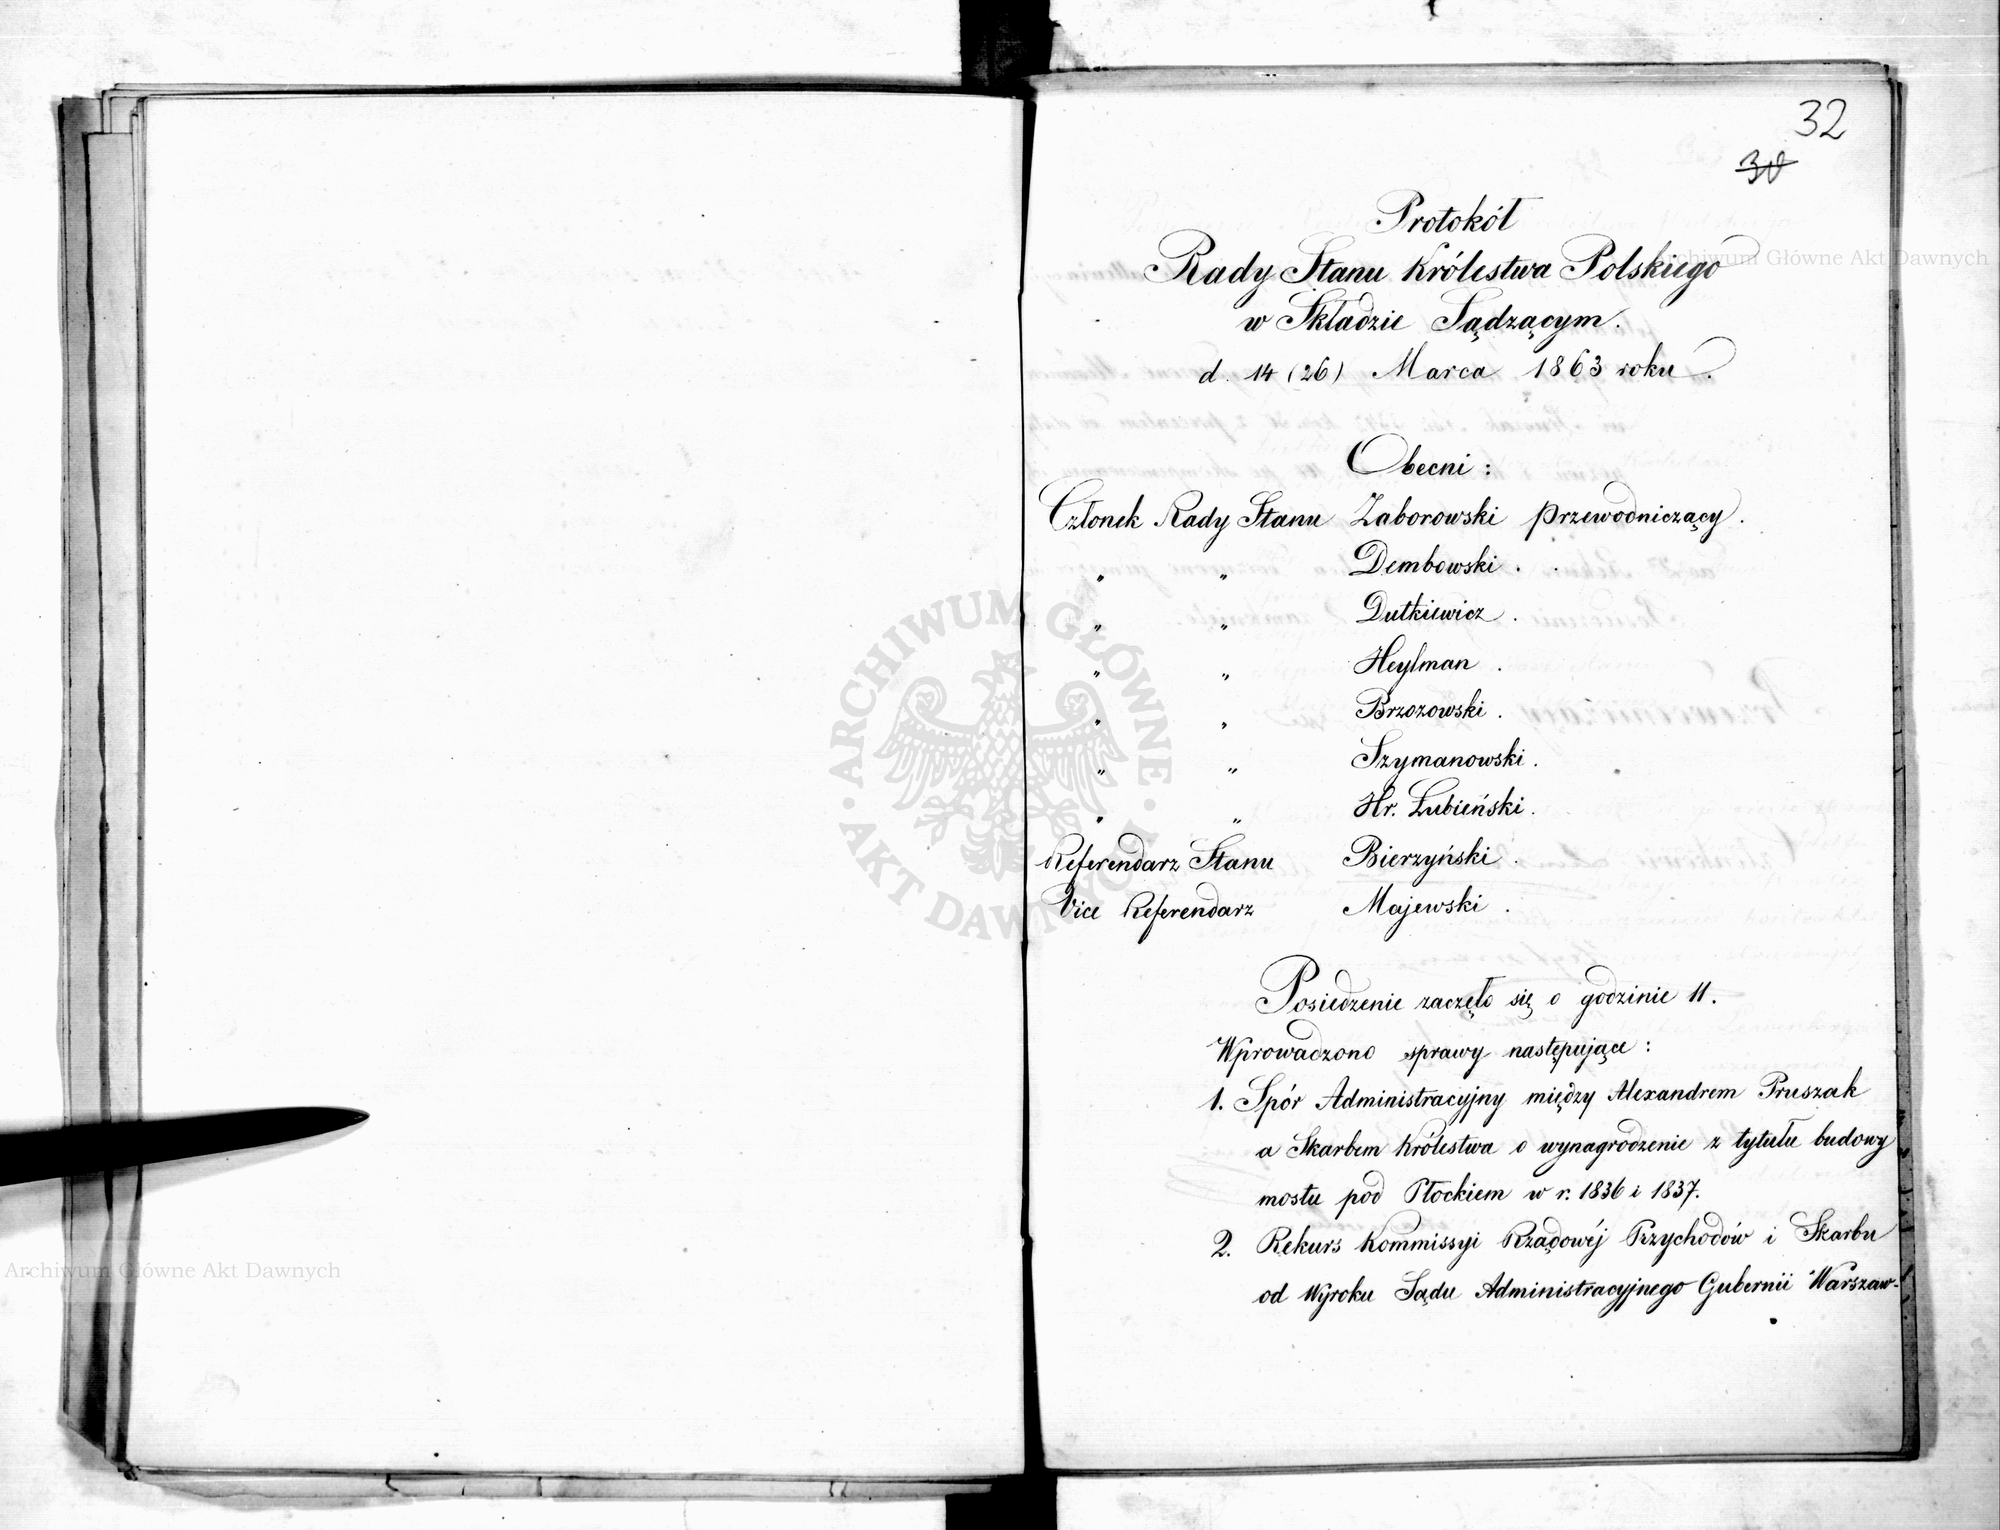 32
30
Protokół
Rady Stanu Królestwa Polskiego
w Składzie Sądzącym.
d. 14 (26) Marca 1863 roku.
Obecni:
Członek Rady Stanu Zaborowski przewodniczący.
" " Dembowski.
" " Dutkiewicz.
" " Heylman.
" " Brzozowski.
" " Szymanowski.
" " Hr. Łubieński.
Referendarz Stanu Bierzyński.
Vice Referendarz Majewski.
Posiedzenie zaczęło się o godzinie 11.
Wprowadzono sprawy następujące:
1. Spór Administracyjny między Alexandrem Pruszak
a Skarbem Królestwa o wynagrodzenie z tytułu budowy
mostu pod Płockiem w r. 1836 i 1837.
2. Rekurs Kommissyi Rządowéj Przychodów i Skarbu
od Wyroku Sądu Administracyjnego Gubernii Warszaw-
Archiwum Główne Akt Dawnych
ARCHIWUM GŁÓWNE AKT DAWNYCH
Archiwum Główne Akt Dawnych